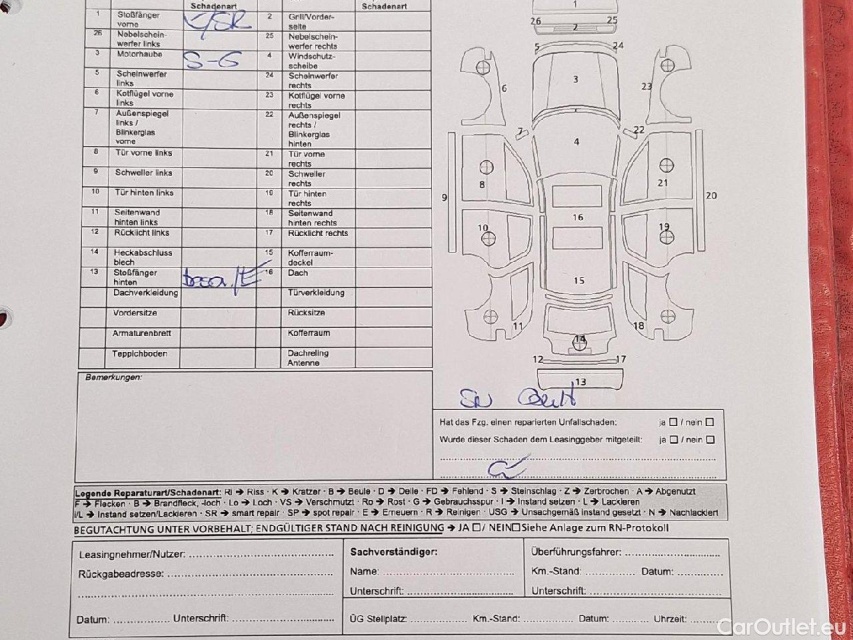 Schadenart Schadenart
1 Stoßfänger vorne 2 Grill/Vorder-seite
26 Nebelschein-werfer links 25 Nebelschein-werfer rechts
3 Motorhaube S-G 4 Windschutz-scheibe
5 Scheinwerfer links 24 Scheinwerfer rechts
6 Kotflügel vorne links 23 Kotflügel vorne rechts
7 Außenspiegel links / Blinkerglas vorne 22 Außenspiegel rechts / Blinkerglas hinten
8 Tür vorne links 21 Tür vorne rechts
9 Schweller links 20 Schweller rechts
10 Tür hinten links 19 Tür hinten rechts
11 Seitenwand hinten links 18 Seitenwand hinten rechts
12 Rücklicht links 17 Rücklicht rechts
14 Heckabschluss blech 15 Kofferraum-deckel
13 Stoßfänger hinten 16 Dach
Dachverkleidung Türverkleidung
Vordersitze Rücksitze
Armaturenbrett Kofferraum
Teppichboden Dachreling Antenne
1
26 2 25
5 24
6 3 23
7 22
4
8 21
9 20
16
10 19
15
11 18
14
12 17
13
Bemerkungen:
Hat das Fzg. einen reparierten Unfallschaden: ja ☐ / nein ☐
Wurde dieser Schaden dem Leasinggeber mitgeteilt: ja ☐ / nein ☐
Legende Reparaturart/Schadenart: RI → Riss · K → Kratzer · B → Beule · D → Delle · FD → Fehlend · S → Steinschlag · Z → Zerbrochen · A → Abgenutzt
F → Flecken · B → Brandfleck, -loch · Lo → Loch · VS → Verschmutzt · Ro → Rost · G → Gebrauchsspur · I → Instand setzen · L → Lackieren
I/L → Instand setzen/Lackieren · SR → smart repair · SP → spot repair · E → Erneuern · R → Reinigen · USG → Unsachgemäß instand gesetzt · N → Nachlackiert
BEGUTACHTUNG UNTER VORBEHALT; ENDGÜLTIGER STAND NACH REINIGUNG → JA ☐ / NEIN☐ Siehe Anlage zum RN-Protokoll
Leasingnehmer/Nutzer: Sachverständiger: Überführungsfahrer:
Rückgabeadresse: Name: Km.-Stand: Datum:
Unterschrift: Unterschrift:
Datum: Unterschrift: ÜG Stellplatz: Km.-Stand: Datum: Uhrzeit:
CarOutlet.eu